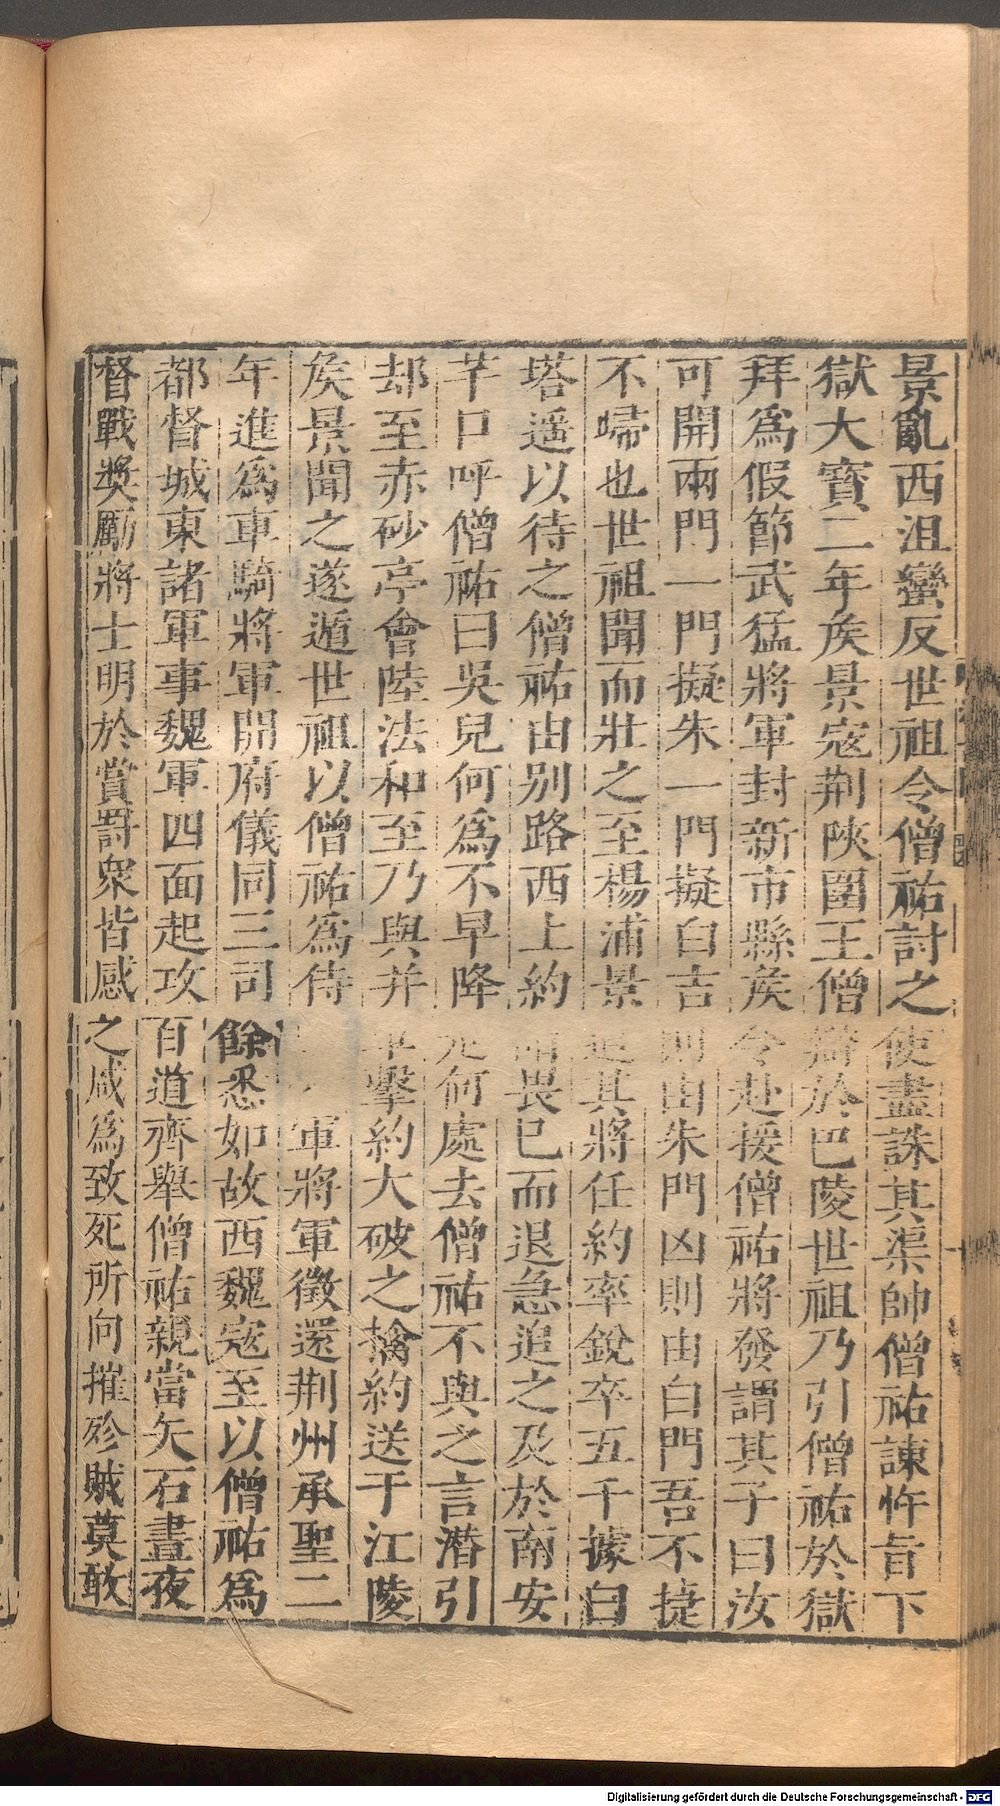 景亂西沮蠻反世祖令僧祐討之使盡誅其渠帥僧祐諫忤旨下
獄大寶二年矦景寇荆陜圍王僧辯於巴陵世祖乃引僧祐於獄
拜爲假節武猛將軍封新市縣矦令赴援僧祐將發謂其子曰汝
可開兩門一門擬朱一門擬白吉則由朱門凶則由白門吾不捷
不歸也世祖聞而壯之至楊浦景其將任約率銳卒五千據白
塔遥以待之僧祐由別路西上約畏已而退急追之及於南安
芊口呼僧祐曰吳兒何爲不早降何處去僧祐不與之言潛引
却至赤砂亭會陸法和至乃與并軍擊約大破之擒約送于江陵
矦景聞之遂遁世祖以僧祐爲侍軍將軍徵還荆州承聖二
年進爲車騎將軍開府儀同三司餘悉如故西魏寇至以僧祐爲
都督城東諸軍事魏軍四面起攻百道齊舉僧祐親當矢石晝夜
督戰獎勵將士明於賞罰衆皆感之咸爲致死所向摧殄賊莫敢
Digitalisierung gefördert durch die Deutsche Forschungsgemeinschaft - DFG